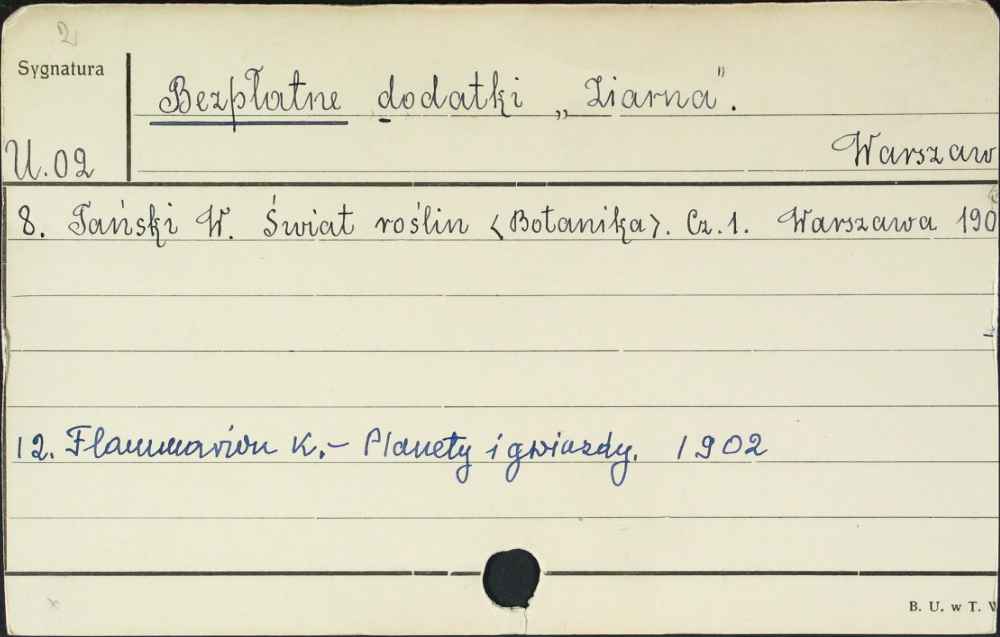 2
Sygnatura
Bezpłatne dodatki „Ziarna”.
U.02
Warszaw
8. Tański W. Świat roślin <Botanika>. Cz.1. Warszawa 190
12. Flammarion K.- Planety i gwiazdy. 1902
B. U. w T.